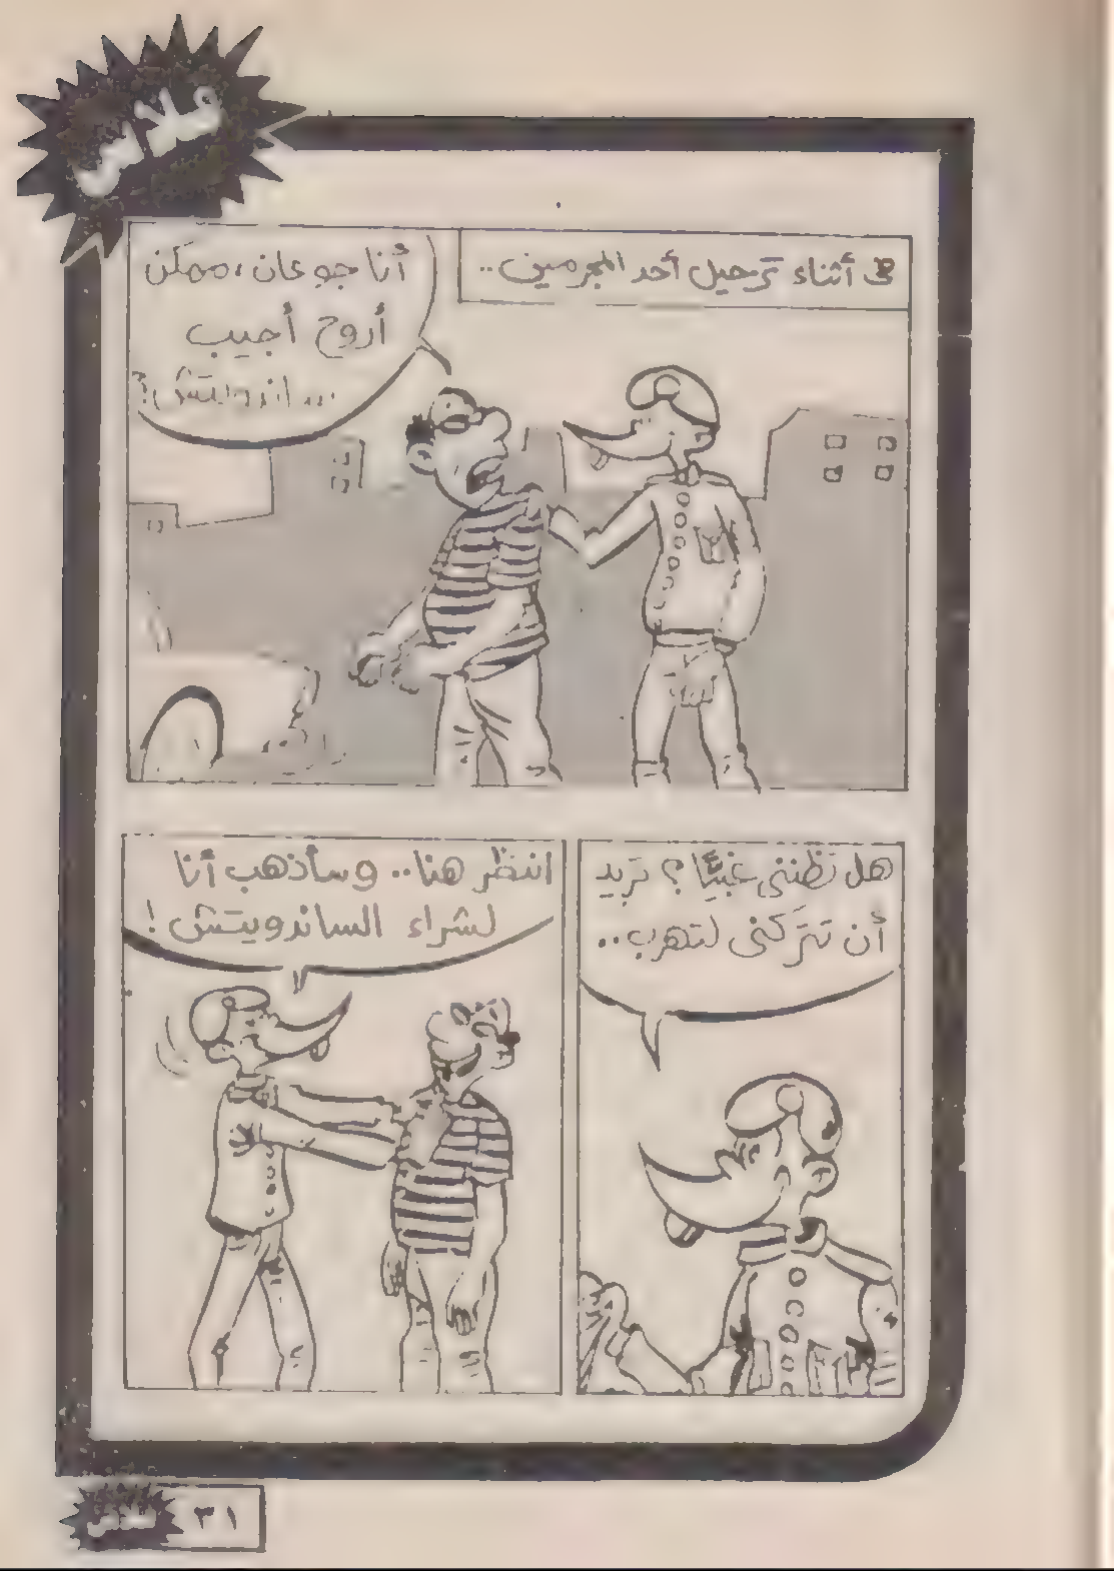 فلاش
فى أثناء ترحيل أحد المجرمين..
أنا جوعان، ممكن
أروح أجيب
ساندويتش؟
هل تظننى غبيًّا؟ تريد
أن تتركنى لتهرب..
انتظر هنا.. وسأذهب أنا
لشراء الساندويتش!
فلاش
٣١